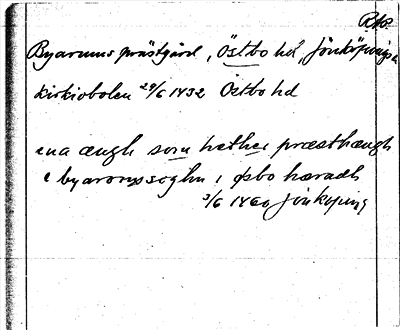 RAp.
Byarums prästgård, Östbo hd, Jönköpings
kirkiobolen 29/6 1432 Östbo hd
ena ængh som hether præsthængh
i byaromssoghn i Øsbo hæradh
3/6 1460 Jönköping